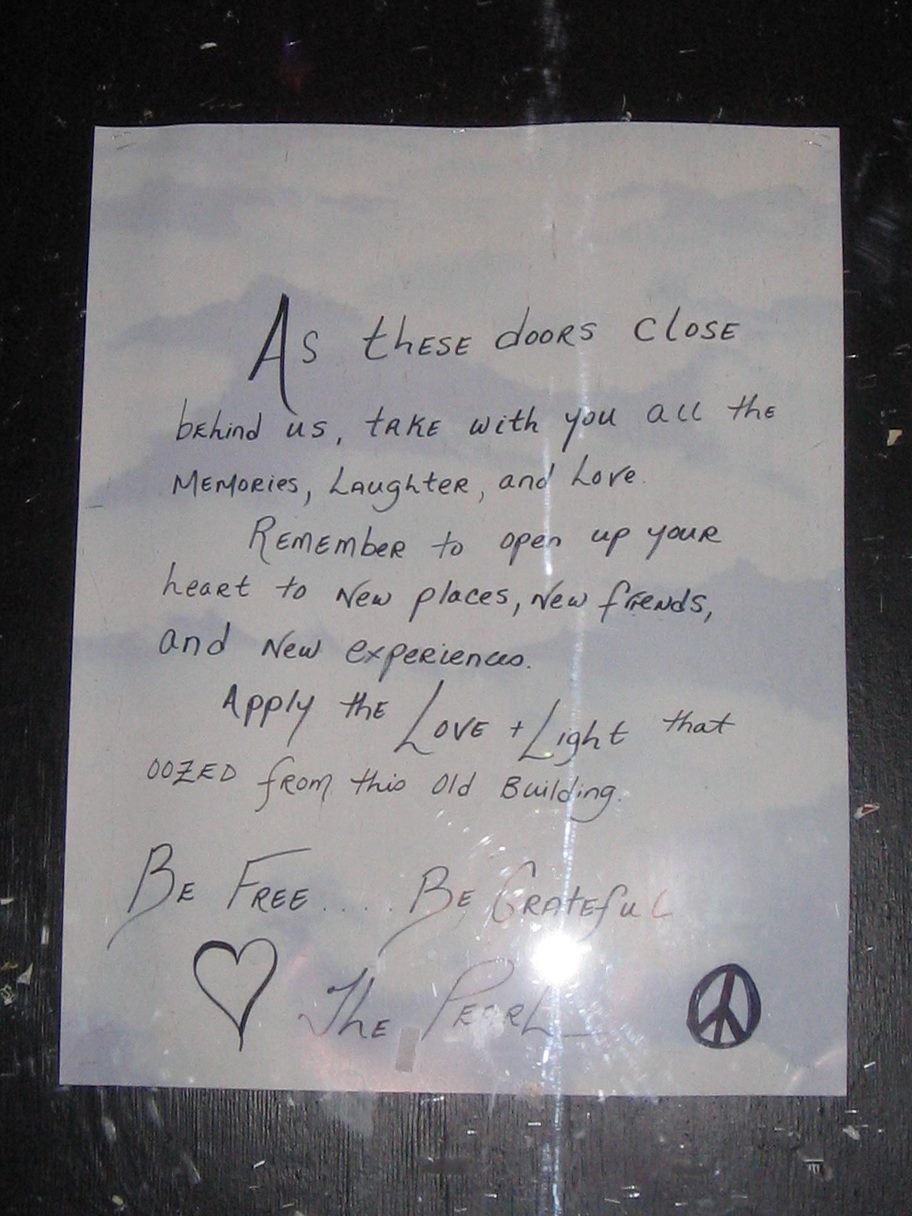 As these doors close
behind us, take with you all the
memories, Laughter, and Love.
Remember to open up your
heart to New places, New friends,
and New experiences.
Apply the Love + Light that
oozed from this Old Building.
Be Free.... Be Grateful
The Pearl